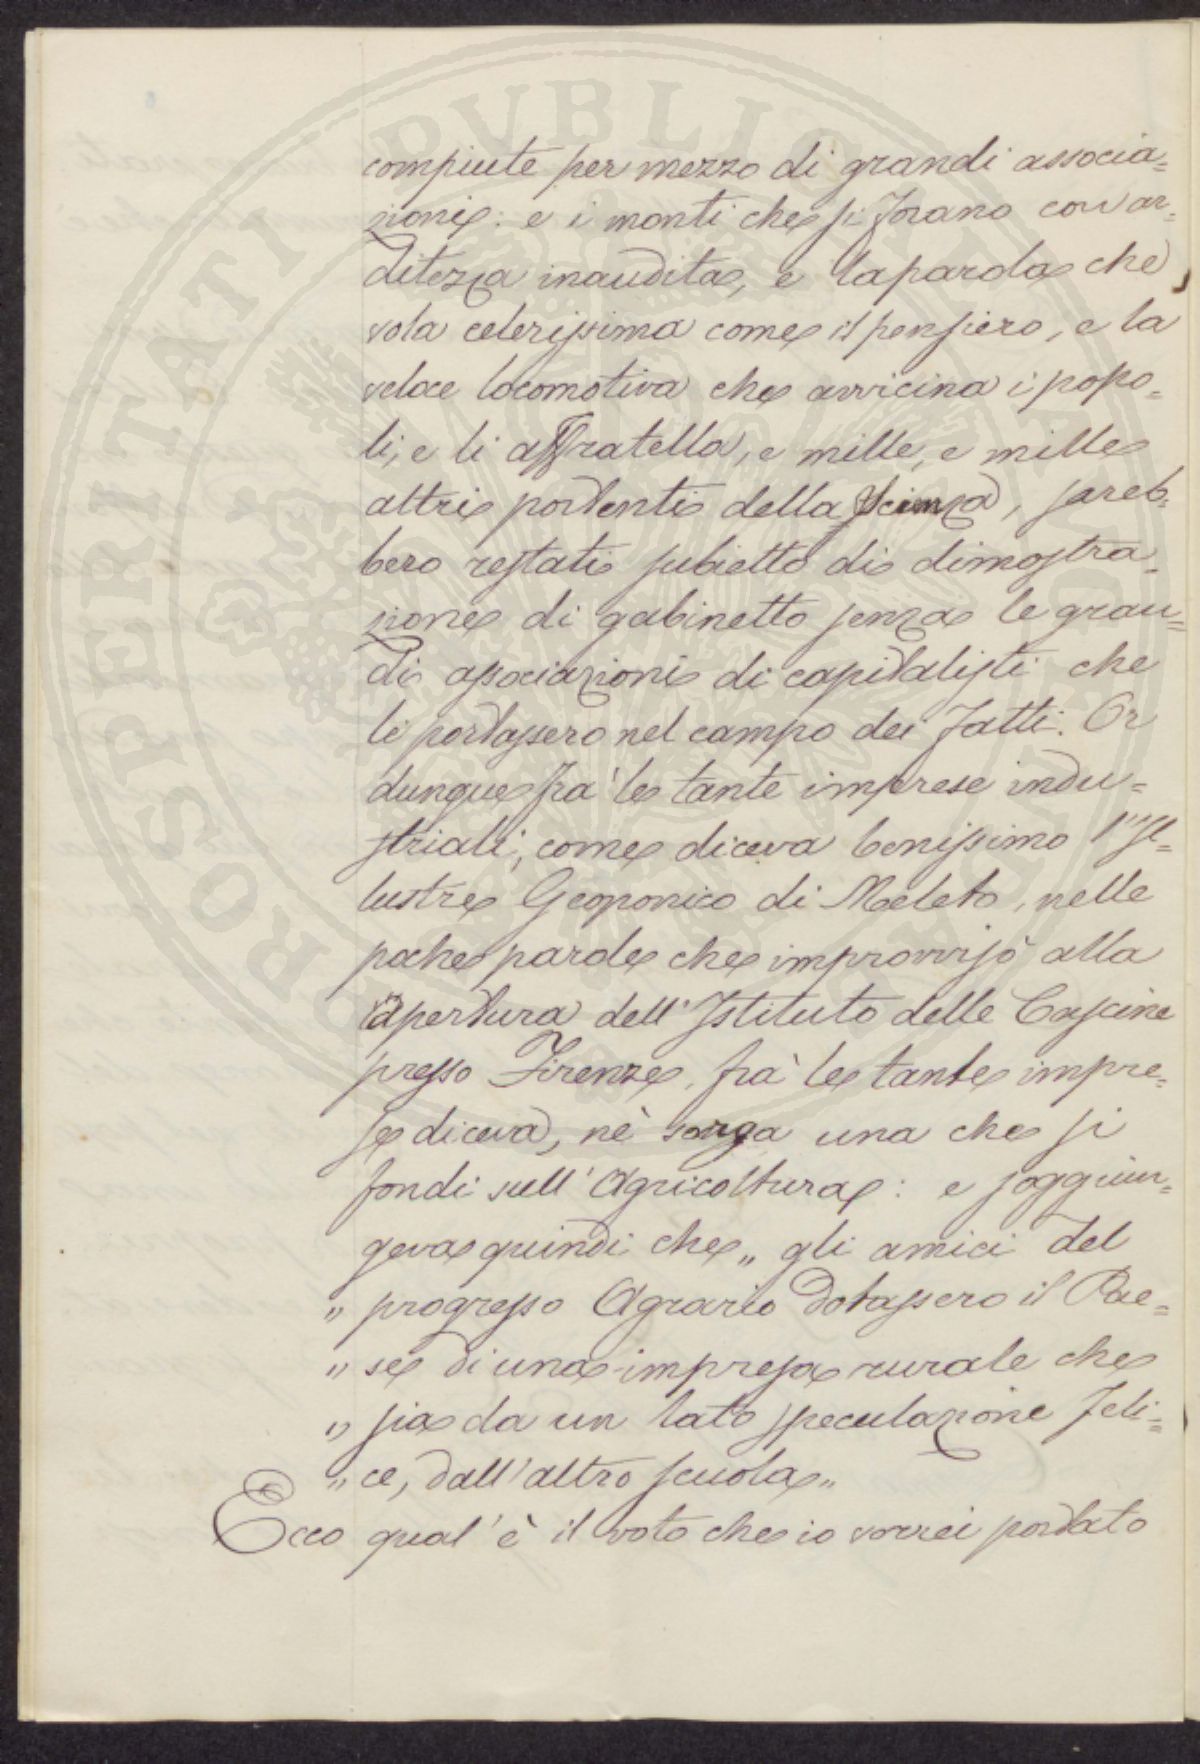 compiute per mezzo di grandi associa=
zioni: e i monti che si forano con ar=
ditezza inaudita, e la parola che
vola celerissima come il pensiero, e la
veloce locomotiva che avvicina i popo=
li, e li affratella, e mille, e mille
altri portenti della scienza, sareb=
bero restati subietto di dimostra=
zione di gabinetto senza le gran=
di associazioni di capitalisti che
li portassero nel campo dei fatti. Or
dunque frà le tante imprese indu=
striali, come diceva benissimo l'Il=
lustre Geoponico di Meleto, nelle
poche parole che improvvisò alla
apertura dell'Istituto delle Cascine
presso Firenze, frà le tante impre=
se diceva, nè sorga una che si
fondi sull'Agricoltura: e soggiun=
geva quindi che „ gli amici del
„ progresso Agrario dotassero il Pae=
„ se di una impresa rurale che
„ sia da un lato speculazione feli=
„ ce, dall'altro scuola „
Ecco qual'è il voto che io vorrei portato
PROSPERITATI PUBLICAE